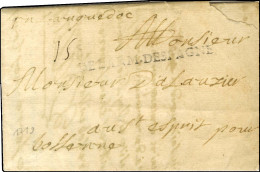 en Languedoc
A Monsieur
15
DE L'ARM. DESPAGNE
Monsieur Dalauzier
au St esprit pour
bollenne